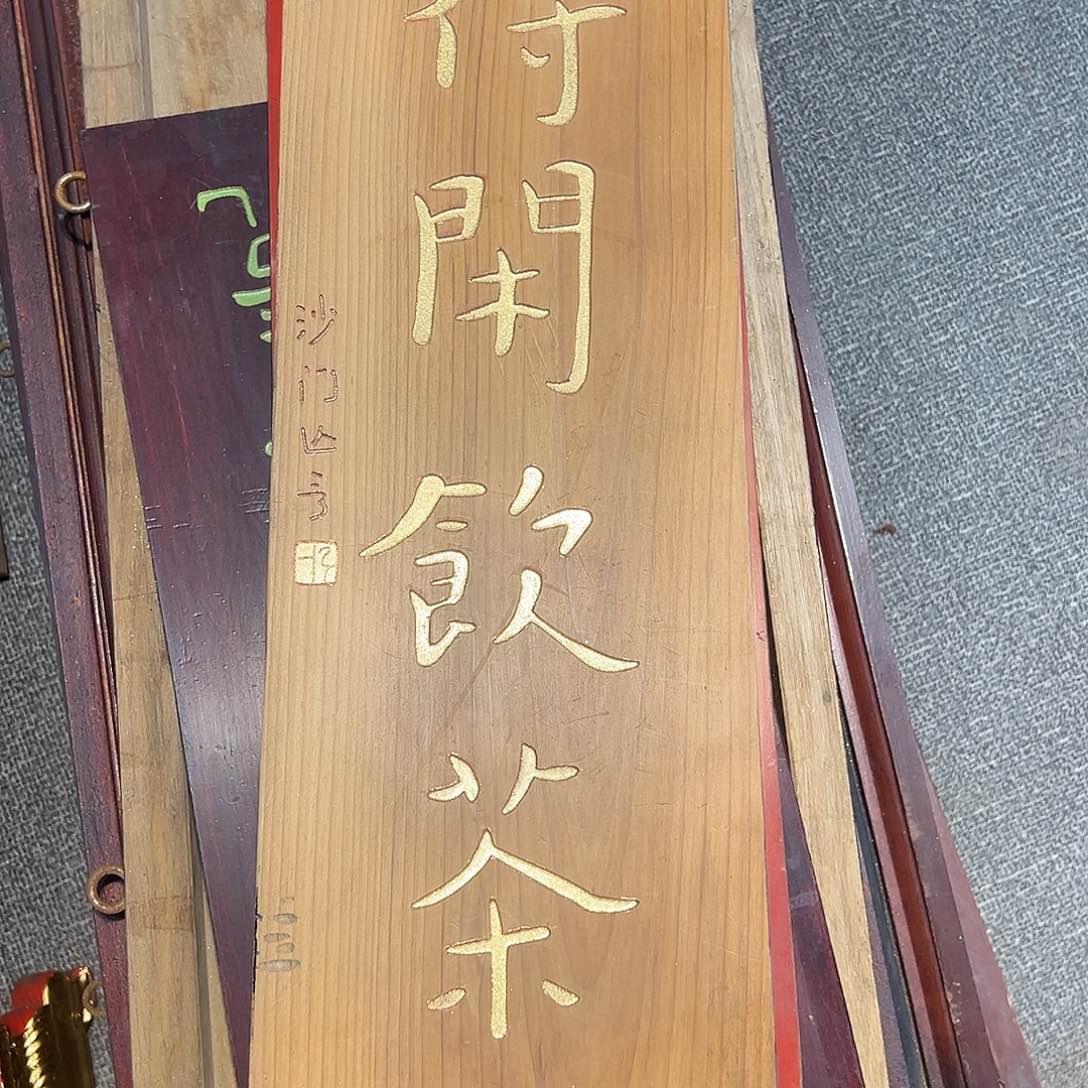 得閑飲茶
沙门